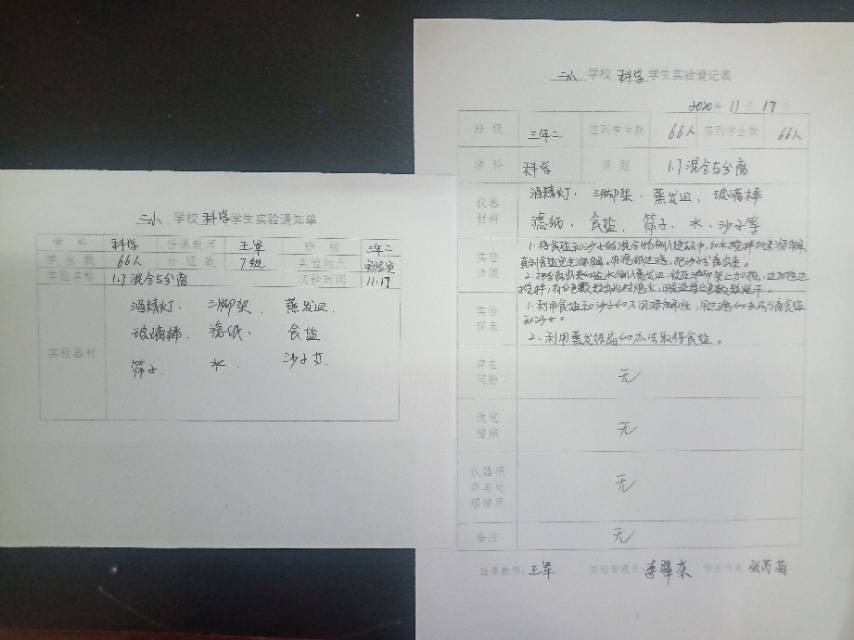 三小 学校 科学 学生实验通知单
学科 科学 任课教师 王军 班级 三年二
学生数 66人 分组数 7组 实验地点 实验室
实验名称 1.7混合与分离 实验时间 11.17
实验器材
酒精灯、 三脚架、 蒸发皿、
玻璃棒、 滤纸、 食盐、
筛子、 水、 沙子等
三小 学校 科学 学生实验登记表
2020年 11月 17日
班级 三年二 应到学生数 66人 实到学生数 66人
学科 科学 课题 1.7混合与分离
仪器材料
酒精灯、三脚架、蒸发皿、玻璃棒
滤纸、食盐、筛子、水、沙子等
实验步骤
1.将食盐和沙子的混合物倒入烧杯中,加水搅拌
直到食盐完全溶解,用滤纸过滤,把沙子分离出来。
2.把分离出来的盐水倒入蒸发皿,放在三脚架上加热,边加热边
搅拌,有白色颗粒出现时熄火,用
实验结果
1.利用食盐和沙子的不同溶解性,用过滤的办法分离食盐
和沙子。
2.利用蒸发结晶的办法取得食盐。
存在问题 无
改进措施 无
仪器损坏与处理情况 无
备注 无
任课教师:王军 实验管理员: 学生代表